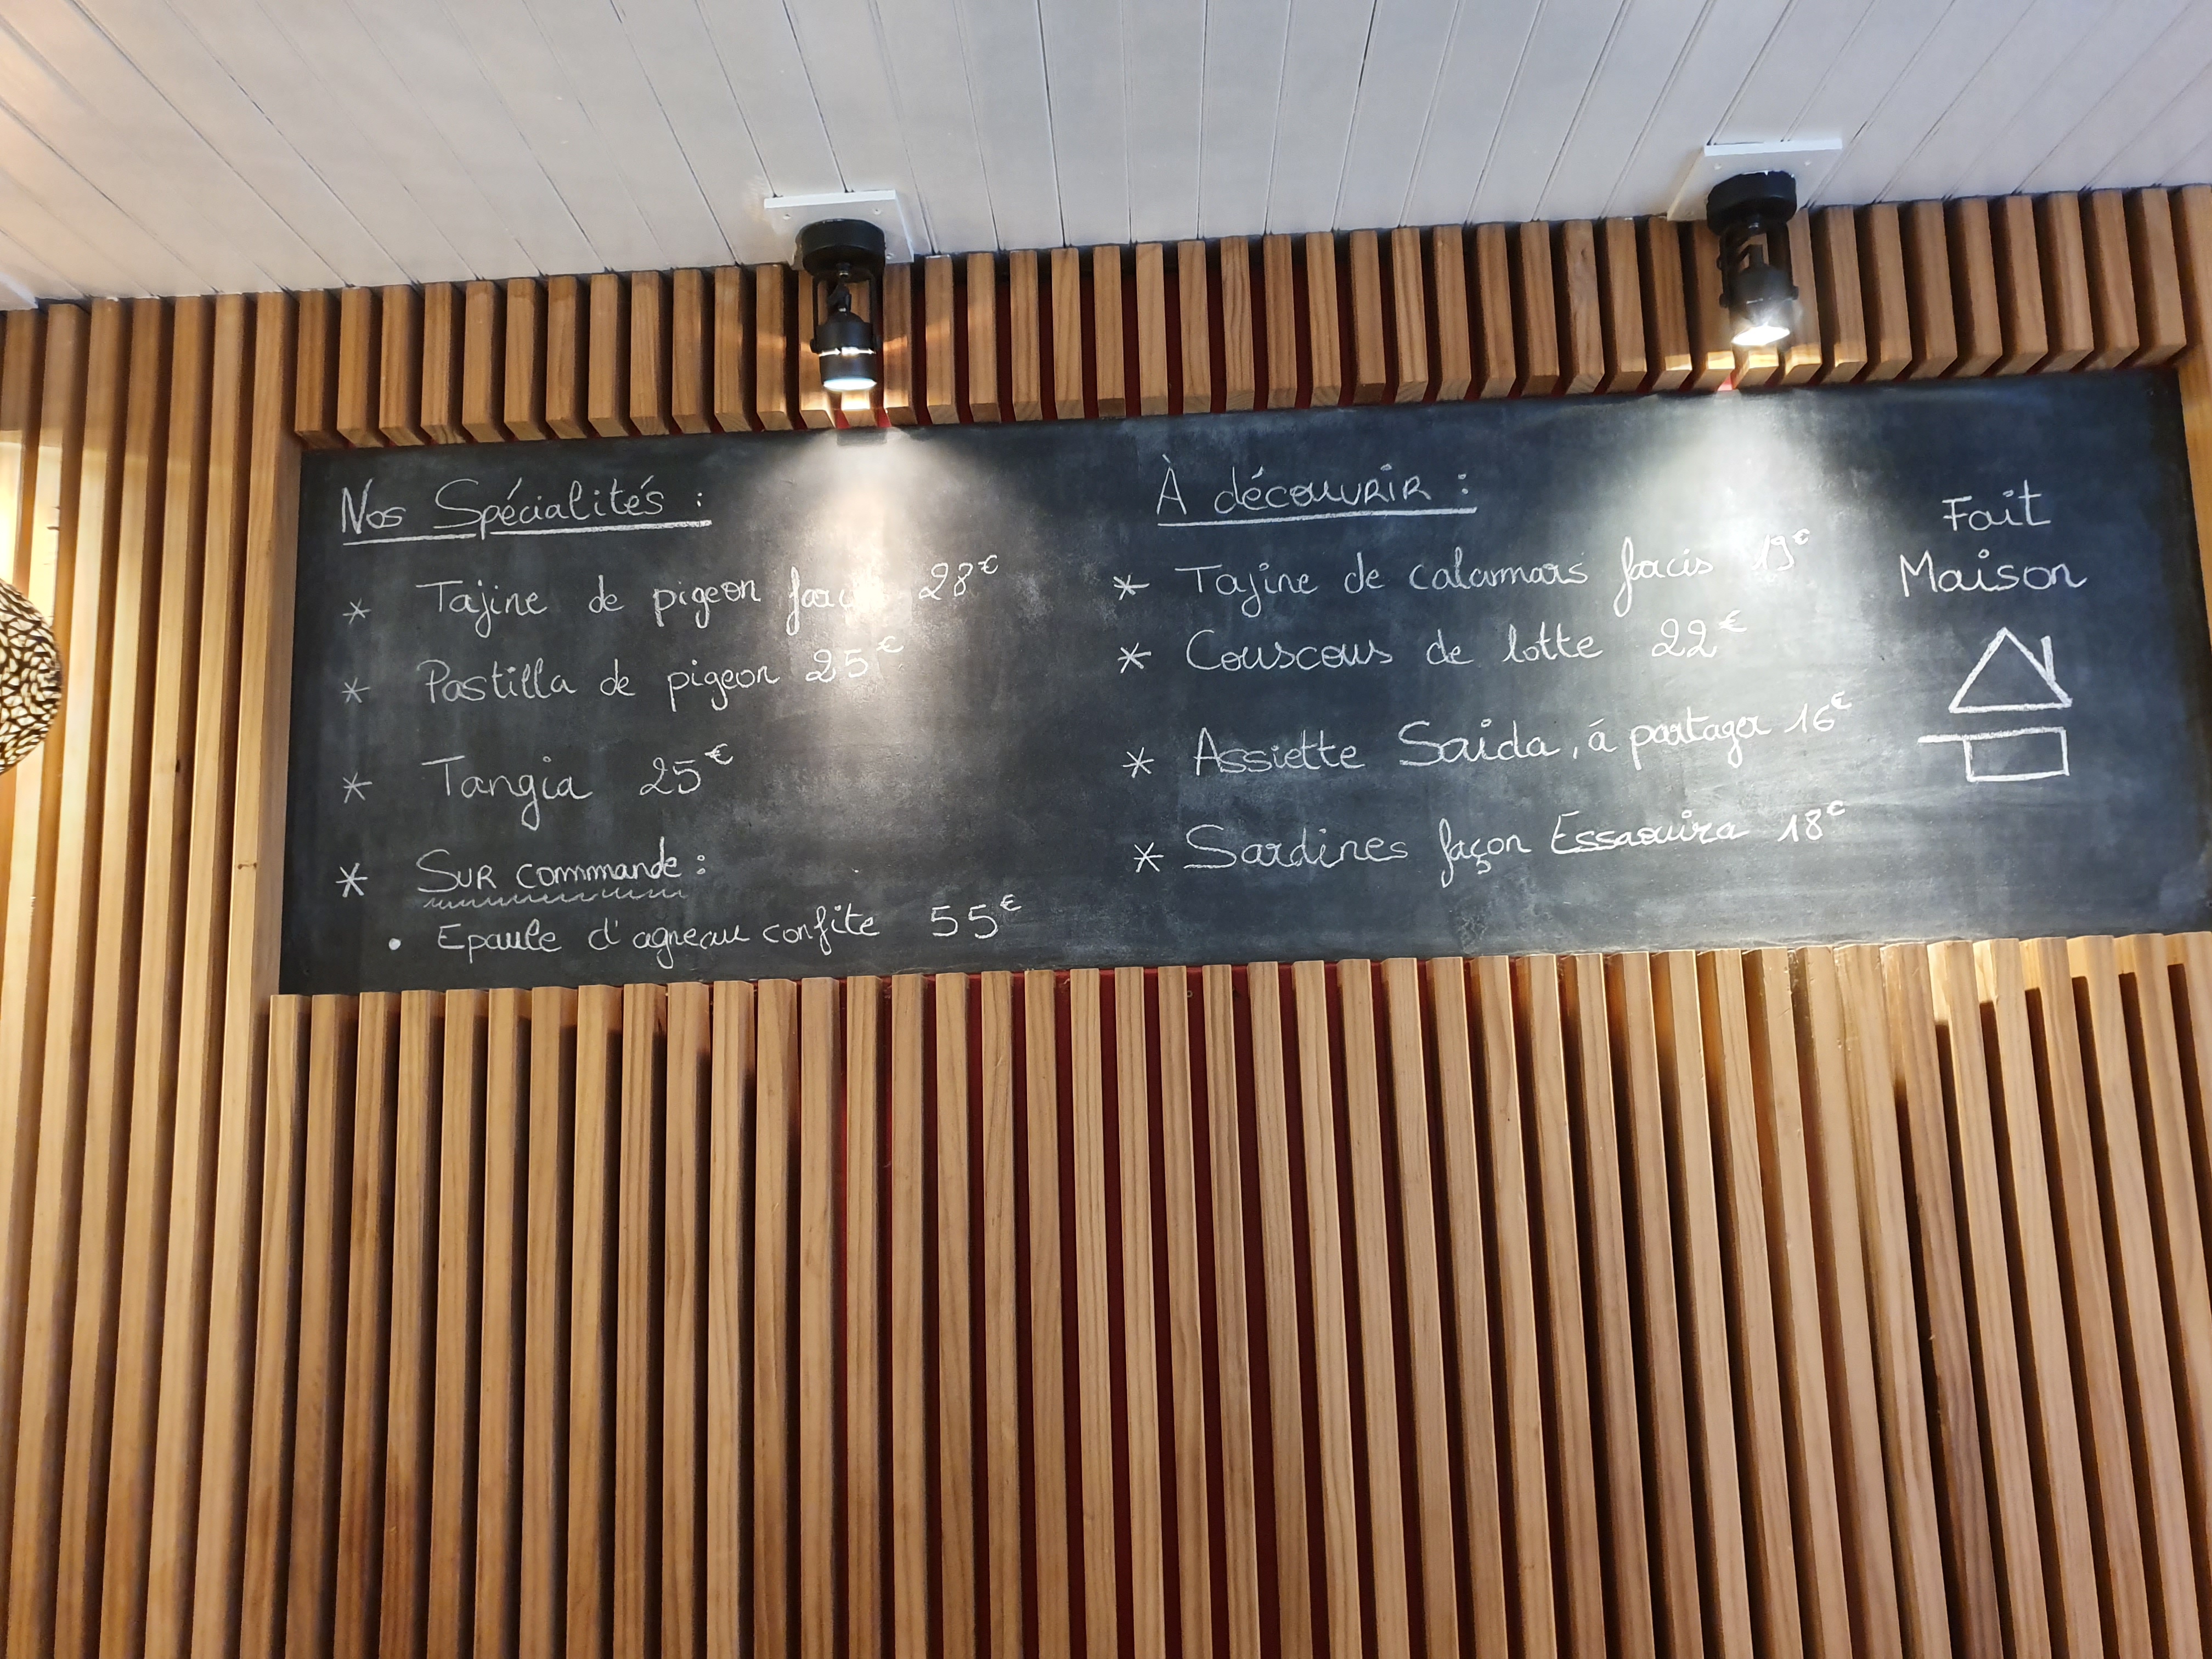 Nos Spécialités :
* Tajine de pigeon farcis 28€
* Pastilla de pigeon 25€
* Tangia 25€
* Sur commande :
• Epaule d'agneau confite 55€
À découvrir :
* Tajine de calamars farcis 19€
* Couscous de lotte 22€
* Assiette Saida, á partager 16€
* Sardines façon Essaouira 18€
Fait
Maison